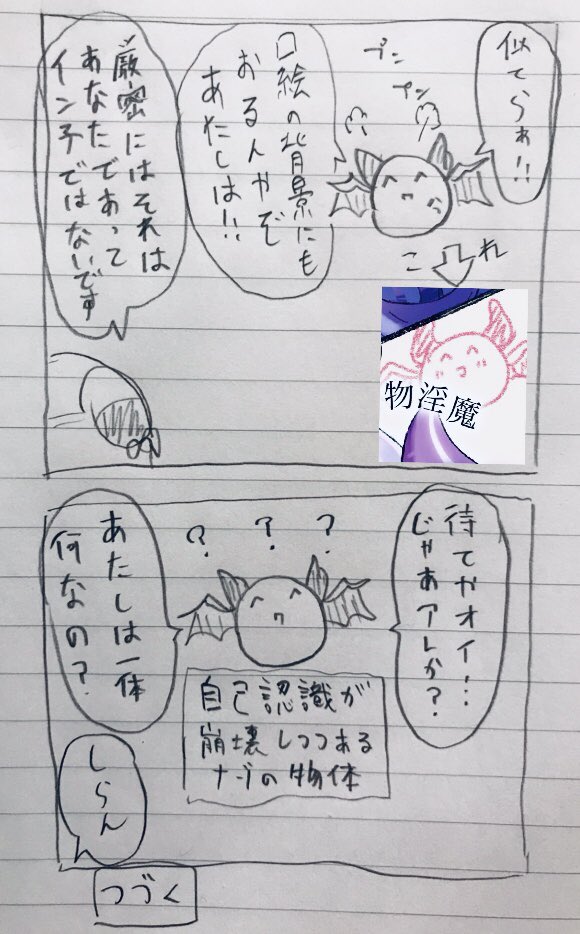 似てらぁ!!
プンプン
口絵の背景にも
おるんやぞ
あたしは!!
厳密にはそれは
あなたであって
イン子ではないです
これ
物淫魔
待てやオイ…
じゃあアレか?
? ? ?
あたしは一体
何なの?
自己認識が
崩壊しつつある
ナゾの物体
しらん
つづく